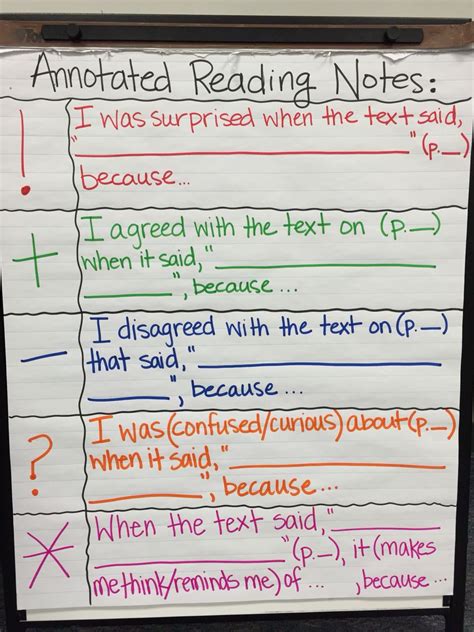 Annotated Reading Notes:
! I was surprised when the text said,
"____________________" (p.__)
because...
+ I agreed with the text on (p.__)
when it said, "____________________
________", because...
— I disagreed with the text on (p.__)
that said, "____________________
________", because...
? I was (confused/curious) about (p.__)
when it said, "____________________
__________", because...
* When the text said, "________
____________________" (p.__), it (makes
me think/reminds me) of ... , because...